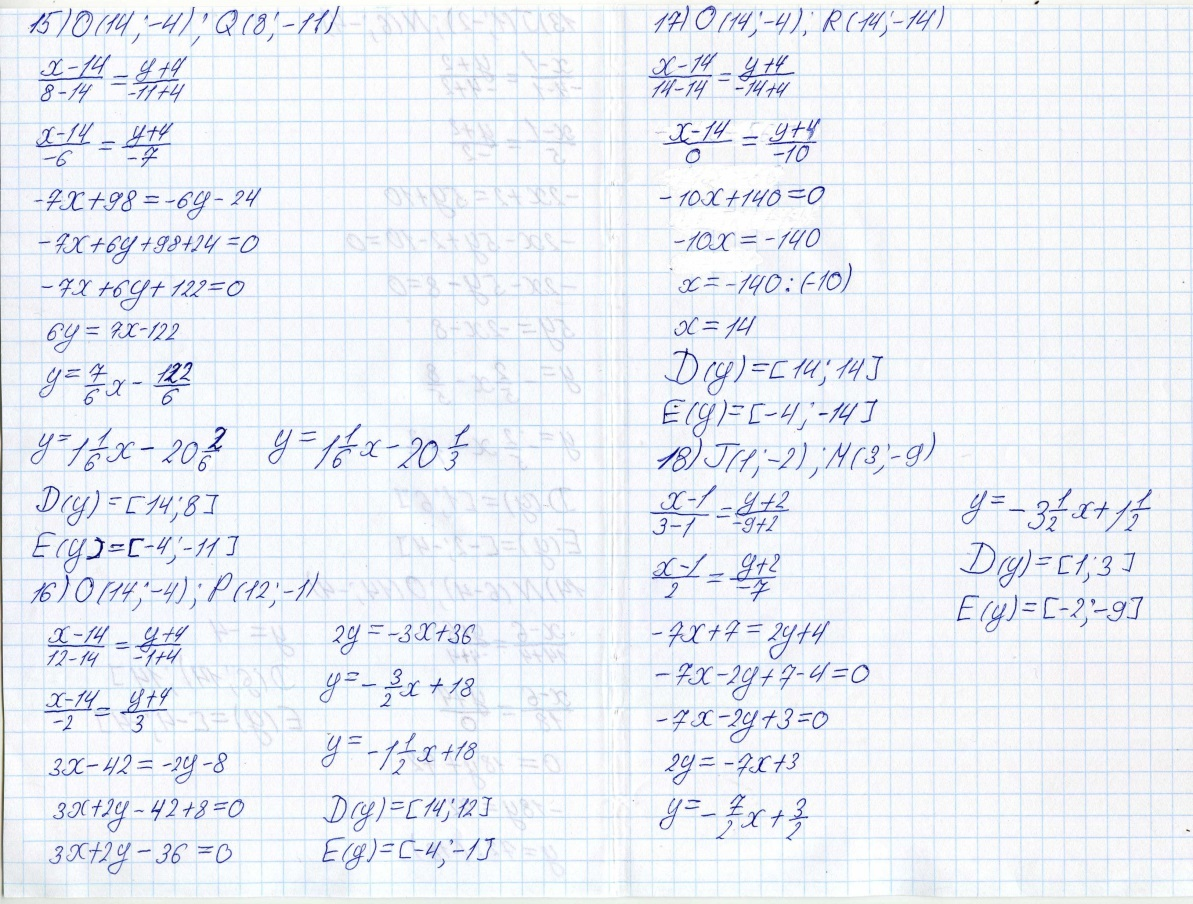 15) O(14;-4); Q(8;-11)
x-14/8-14 = y+4/-11+4
x-14/-6 = y+4/-7
-7x+98=-6y-24
-7x+6y+98+24=0
-7x+6y+122=0
6y=7x-122
y=7/6x-122/6
y=1 1/6x-20 2/6 y=1 1/6x-20 1/3
D(y)=[14;8]
E(y)=[-4;-11]
16) O(14;-4); P(12;-1)
x-14/12-14 = y+4/-1+4
x-14/-2 = y+4/3
3x-42=-2y-8
3x+2y-42+8=0
3x+2y-36=0
2y=-3x+36
y=-3/2x+18
y=-1 1/2x+18
D(y)=[14;12]
E(y)=[-4;-1]
17) O(14;-4); R(14;-14)
x-14/14-14 = y+4/-14+4
x-14/0 = y+4/-10
-10x+140=0
-10x=-140
x=-140:(-10)
x=14
D(y)=[14;14]
E(y)=[-4;-14]
18) T(1;-2); M(3;-9)
x-1/3-1 = y+2/-9+2
x-1/2 = y+2/-7
-7x+7=2y+4
-7x-2y+7-4=0
-7x-2y+3=0
2y=-7x+3
y=-7/2x+3/2
y=-3 1/2x+1 1/2
D(y)=[1;3]
E(y)=[-2;-9]